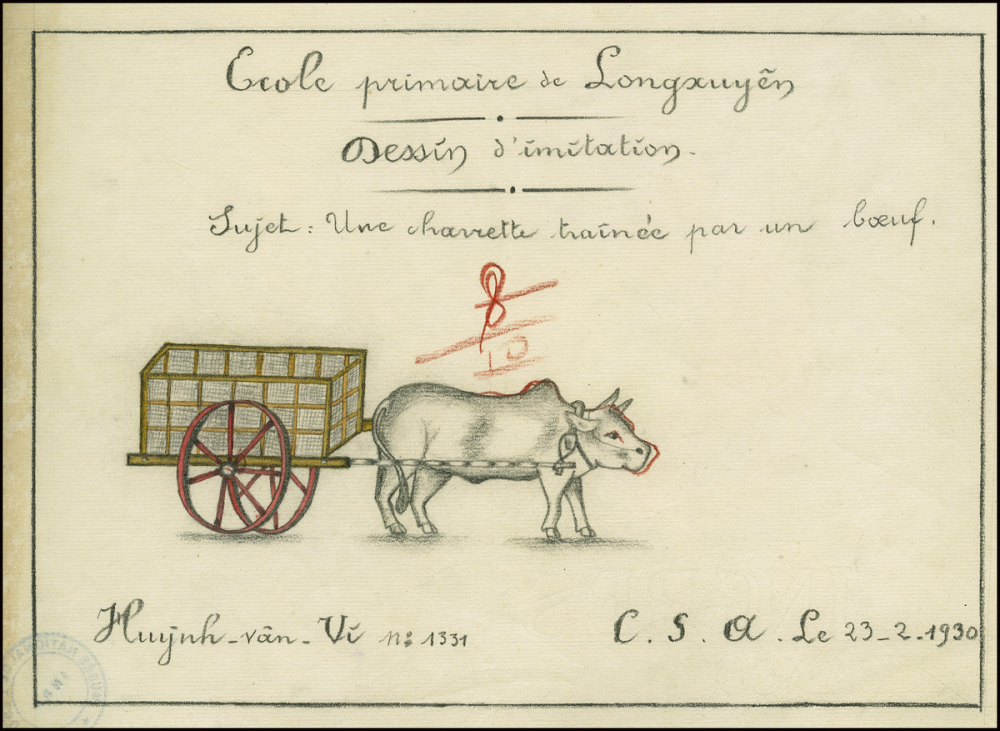 Ecole primaire de Longxuyẽn
Dessin d'imitation.
Sujet: Une charrette traînée par un bœuf.
8
10
Huỳnh-văn-Vi nº 1331
C. S. A. Le 23-2-1930